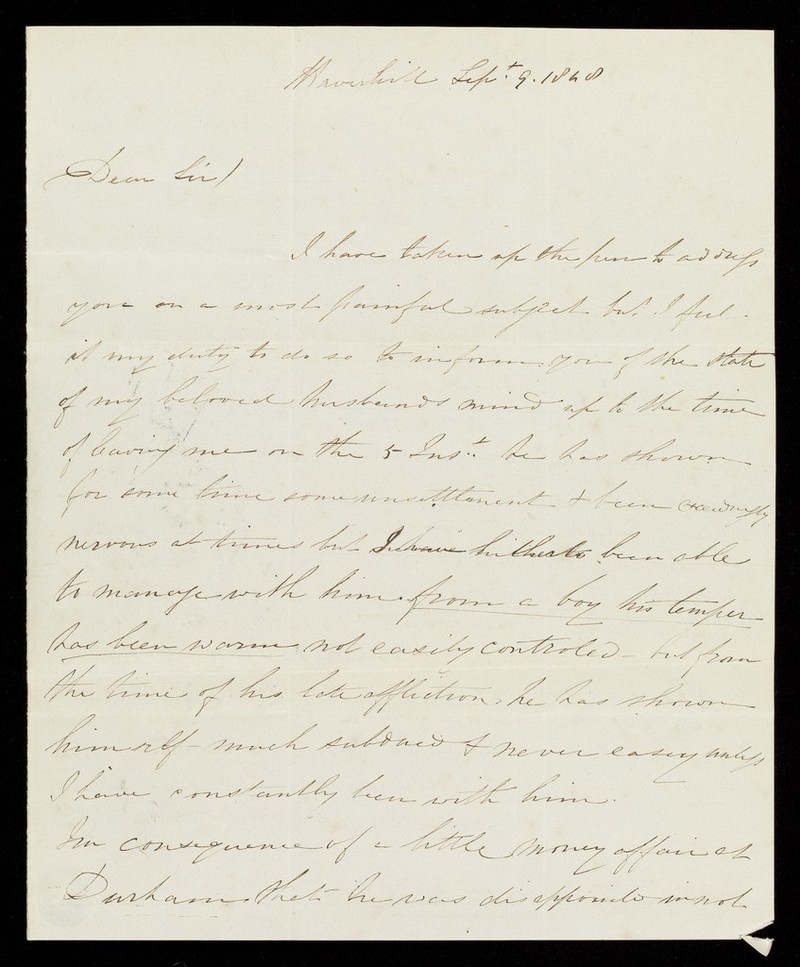 Haverhill Sept. 9. 1848
Dear Sir/
I have taken up the pen to address
you on a most painful subject but I feel
it my duty to do so to inform you of the state
of my beloved husbands mind up to the time
of leaving me on the 5 Inst. he has shown
for some time some unsettlement & been exceedingly
nervous at times but I have hitherto been able
to manage with him from a boy his temper
has been warm not easily controled - but from
the time of his late affliction he has shown
himself much subdued & never easy unless
I have constantly been with him.
In consequence of a little money affair at
Durham that he was disappointed in not